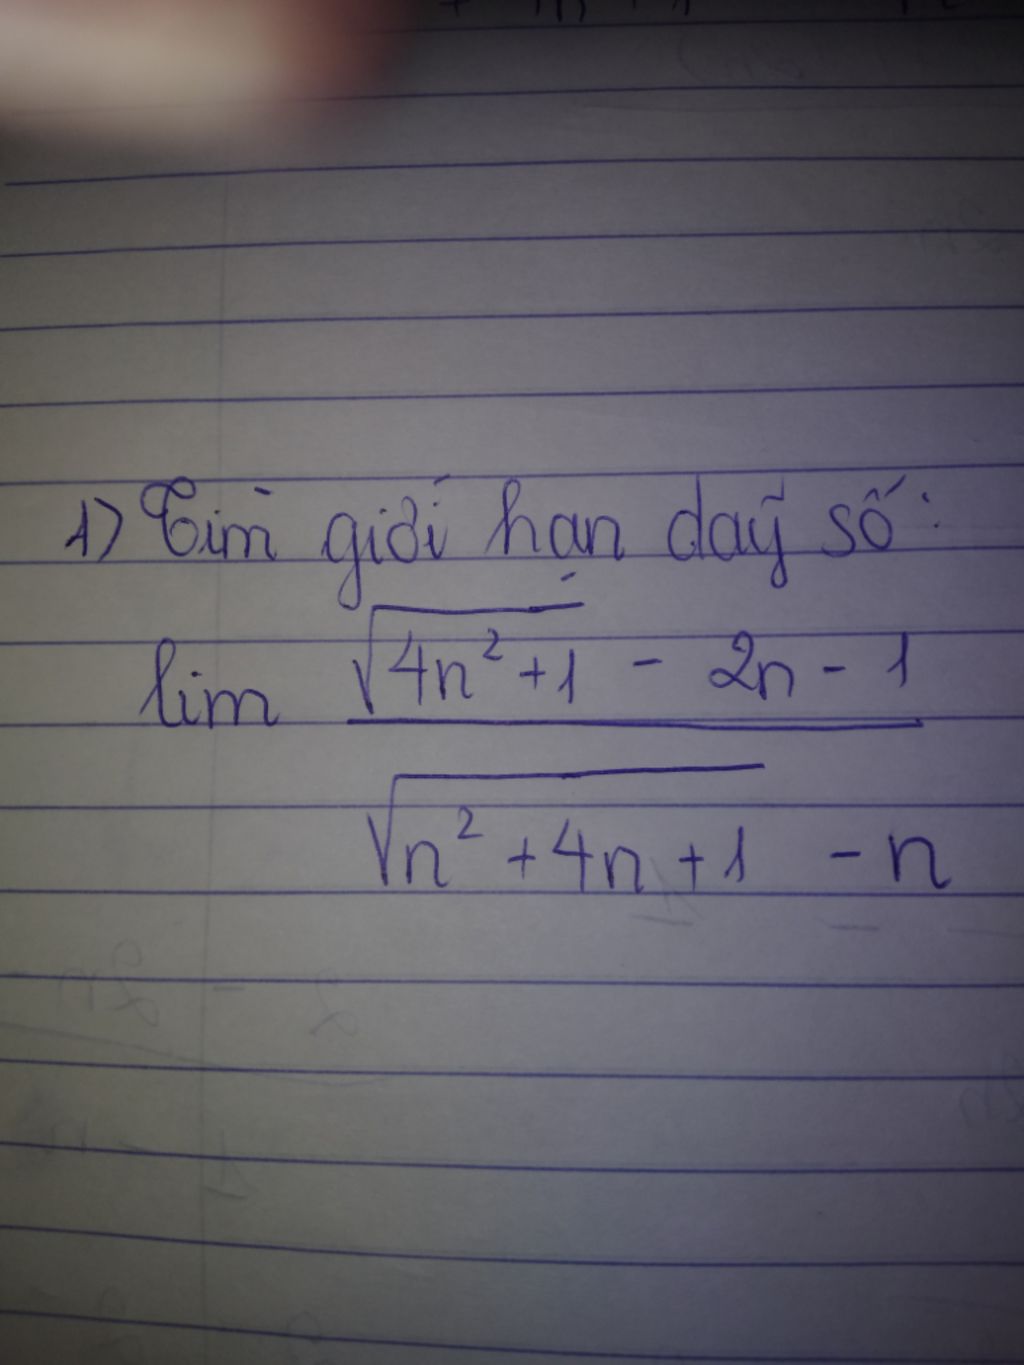 1) Tìm giới hạn daỹ số:
lim \frac{\sqrt{4n^2+1} - 2n - 1}{\sqrt{n^2+4n+1} - n}